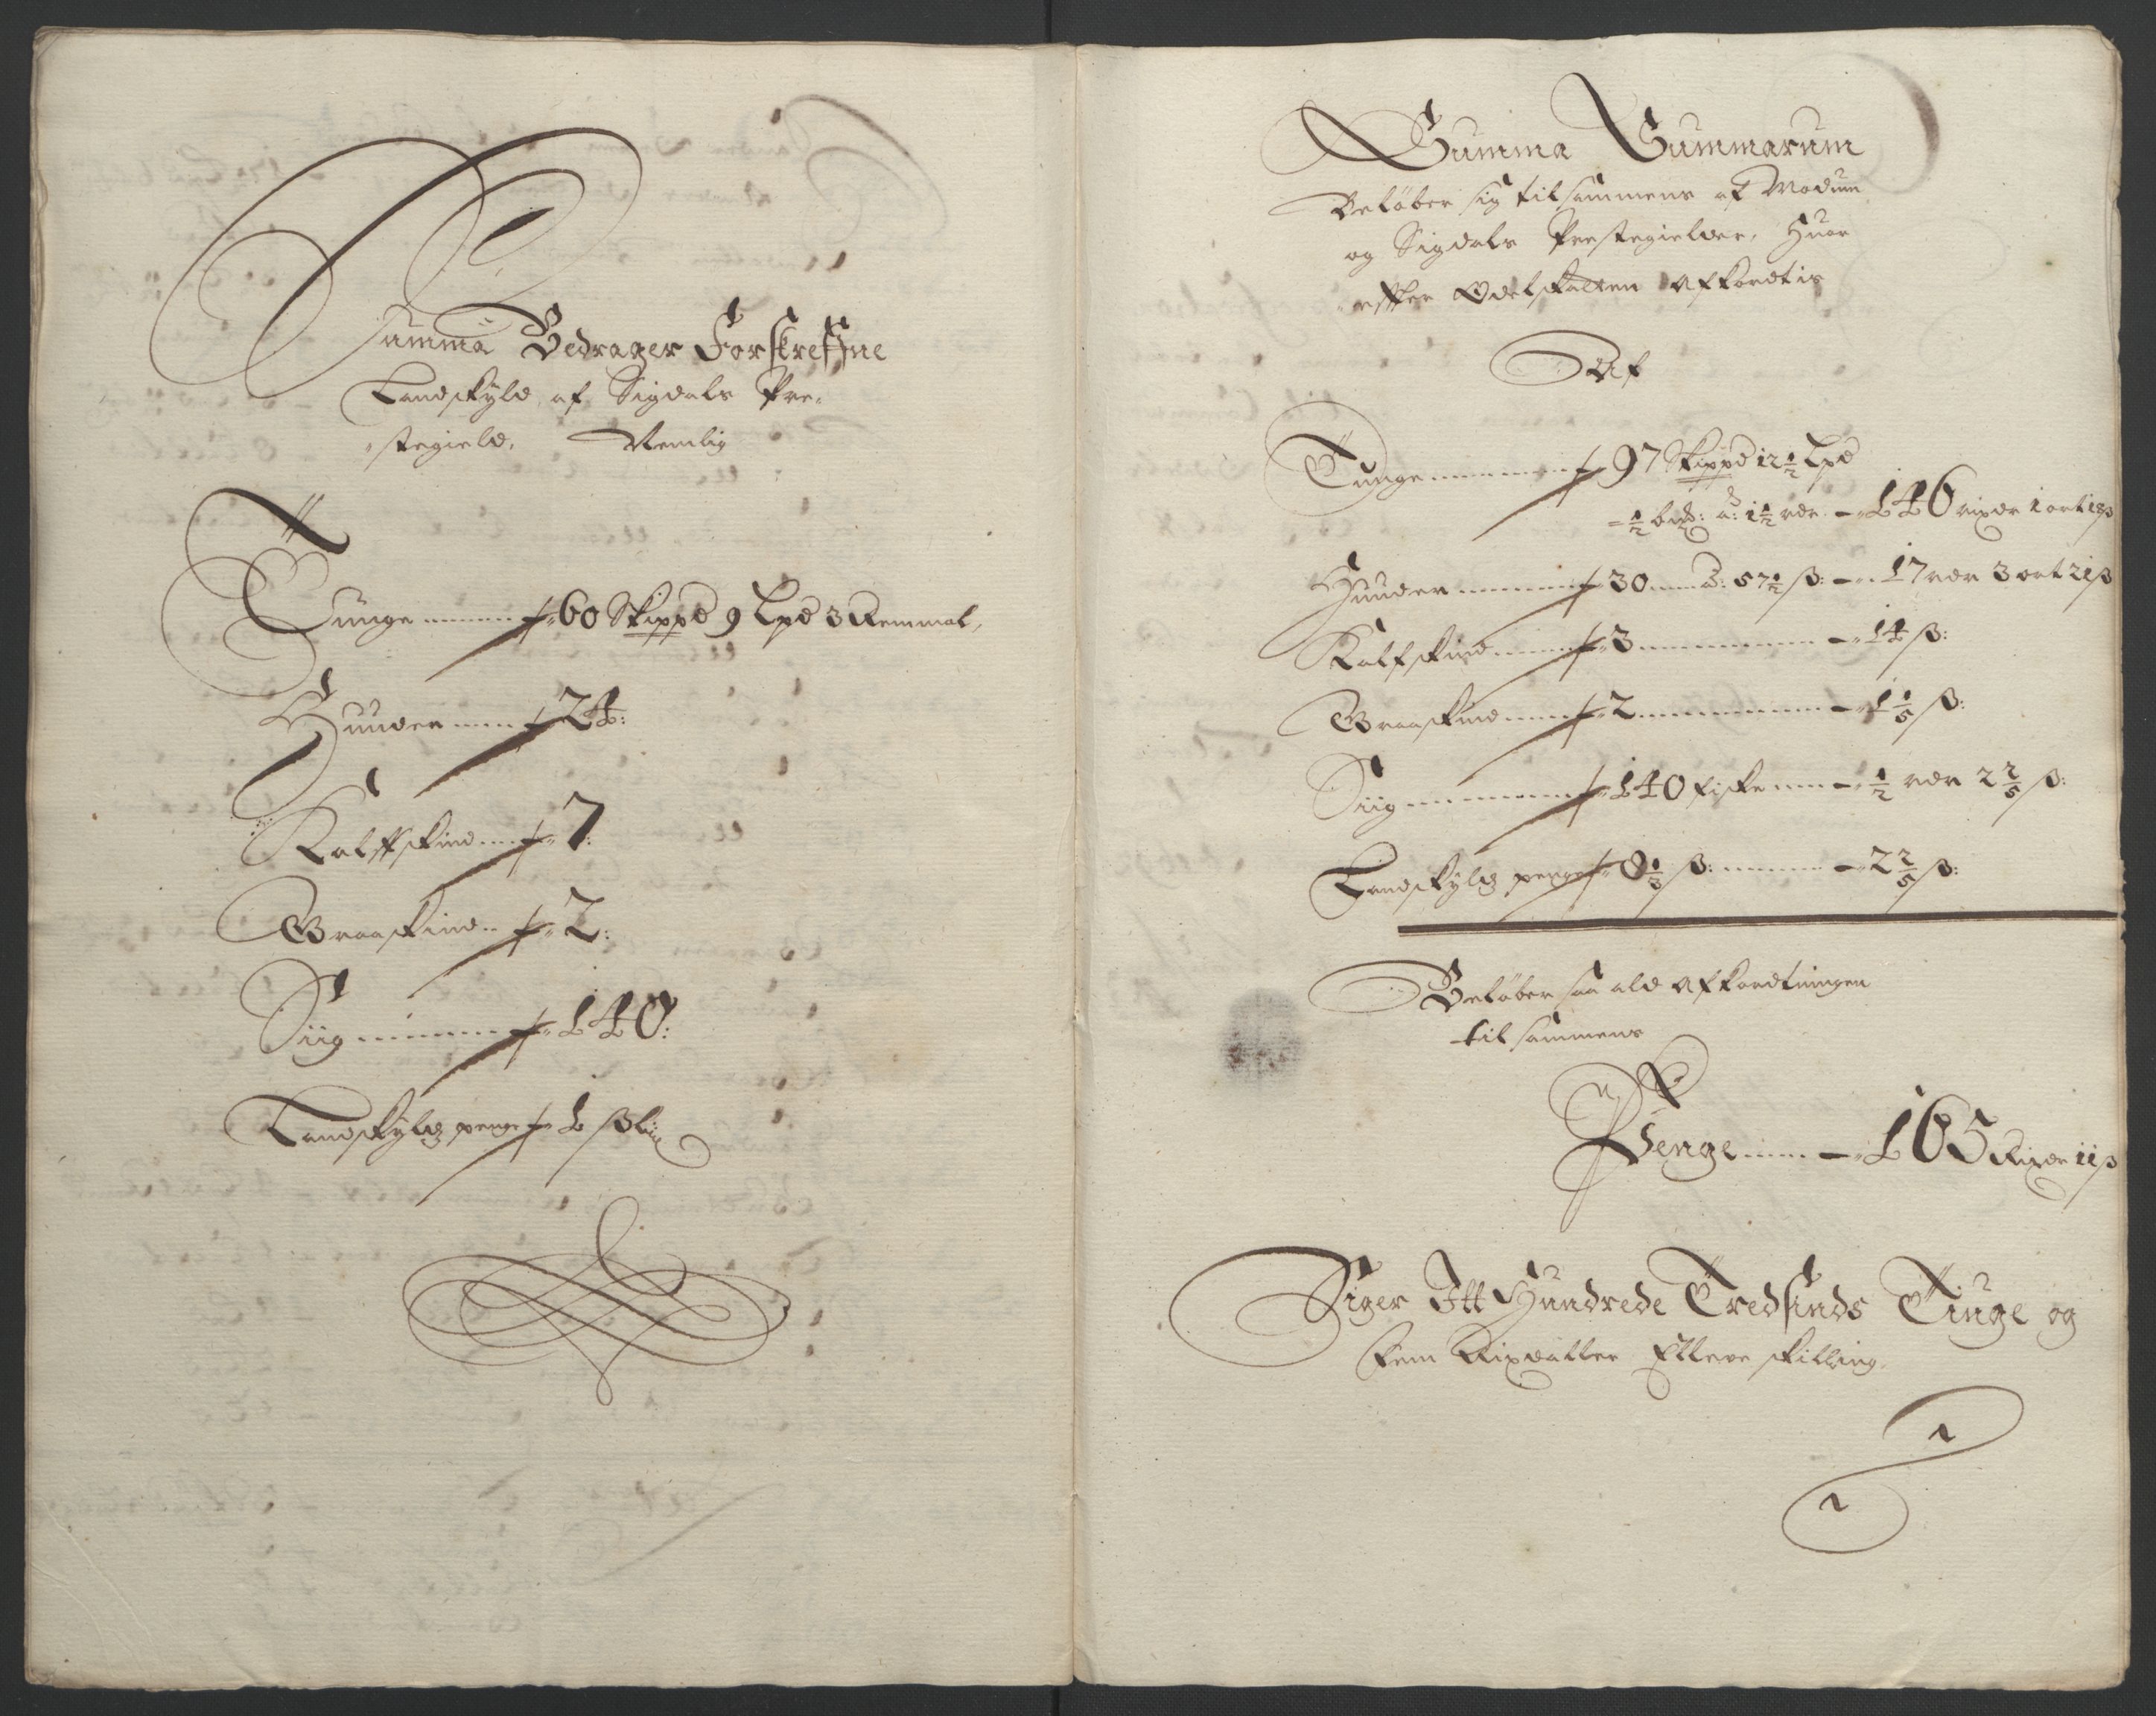 Summa Bedrager Forskreffne
Landskyld, af Sigdals Pre-
stegield, Nemlig
Tunge 60 Skippd 9 Lpd 3 Remmol,
Huuder 24:
Kalffskind 7:
Graaskind 2:
Siig 140:
Landskyldz penge 1 ß
Summa Summarum
Beløber sig tilsammens af Modum
og Sigdals Prestegielder, Huor
effter Odelskatten Afkordtis
Af
Tunge 97 Skippd 12 1/2 Lpd
1/2 à: 1 1/2 rdr 146 rixdr 1 ort 18 ß
Huuder 30 à: 57 1/2 ß: 17 rdr 3 ort 21 ß
Kalfskind 3 14 ß:
Graaskind 2 1 1/5 ß:
Siig 140 fiske 1/2 rdr 2 2/5 ß:
Landskyldz penge 8 1/3 ß: 2 2/5 ß:
Beløber saa ald Afkordtningen
til sammens
Penge 165 Rixdr 11 ß
Siger Itt Hundrede Tredsinds Tiuge og
fem Rixdaller Elleve skilling.